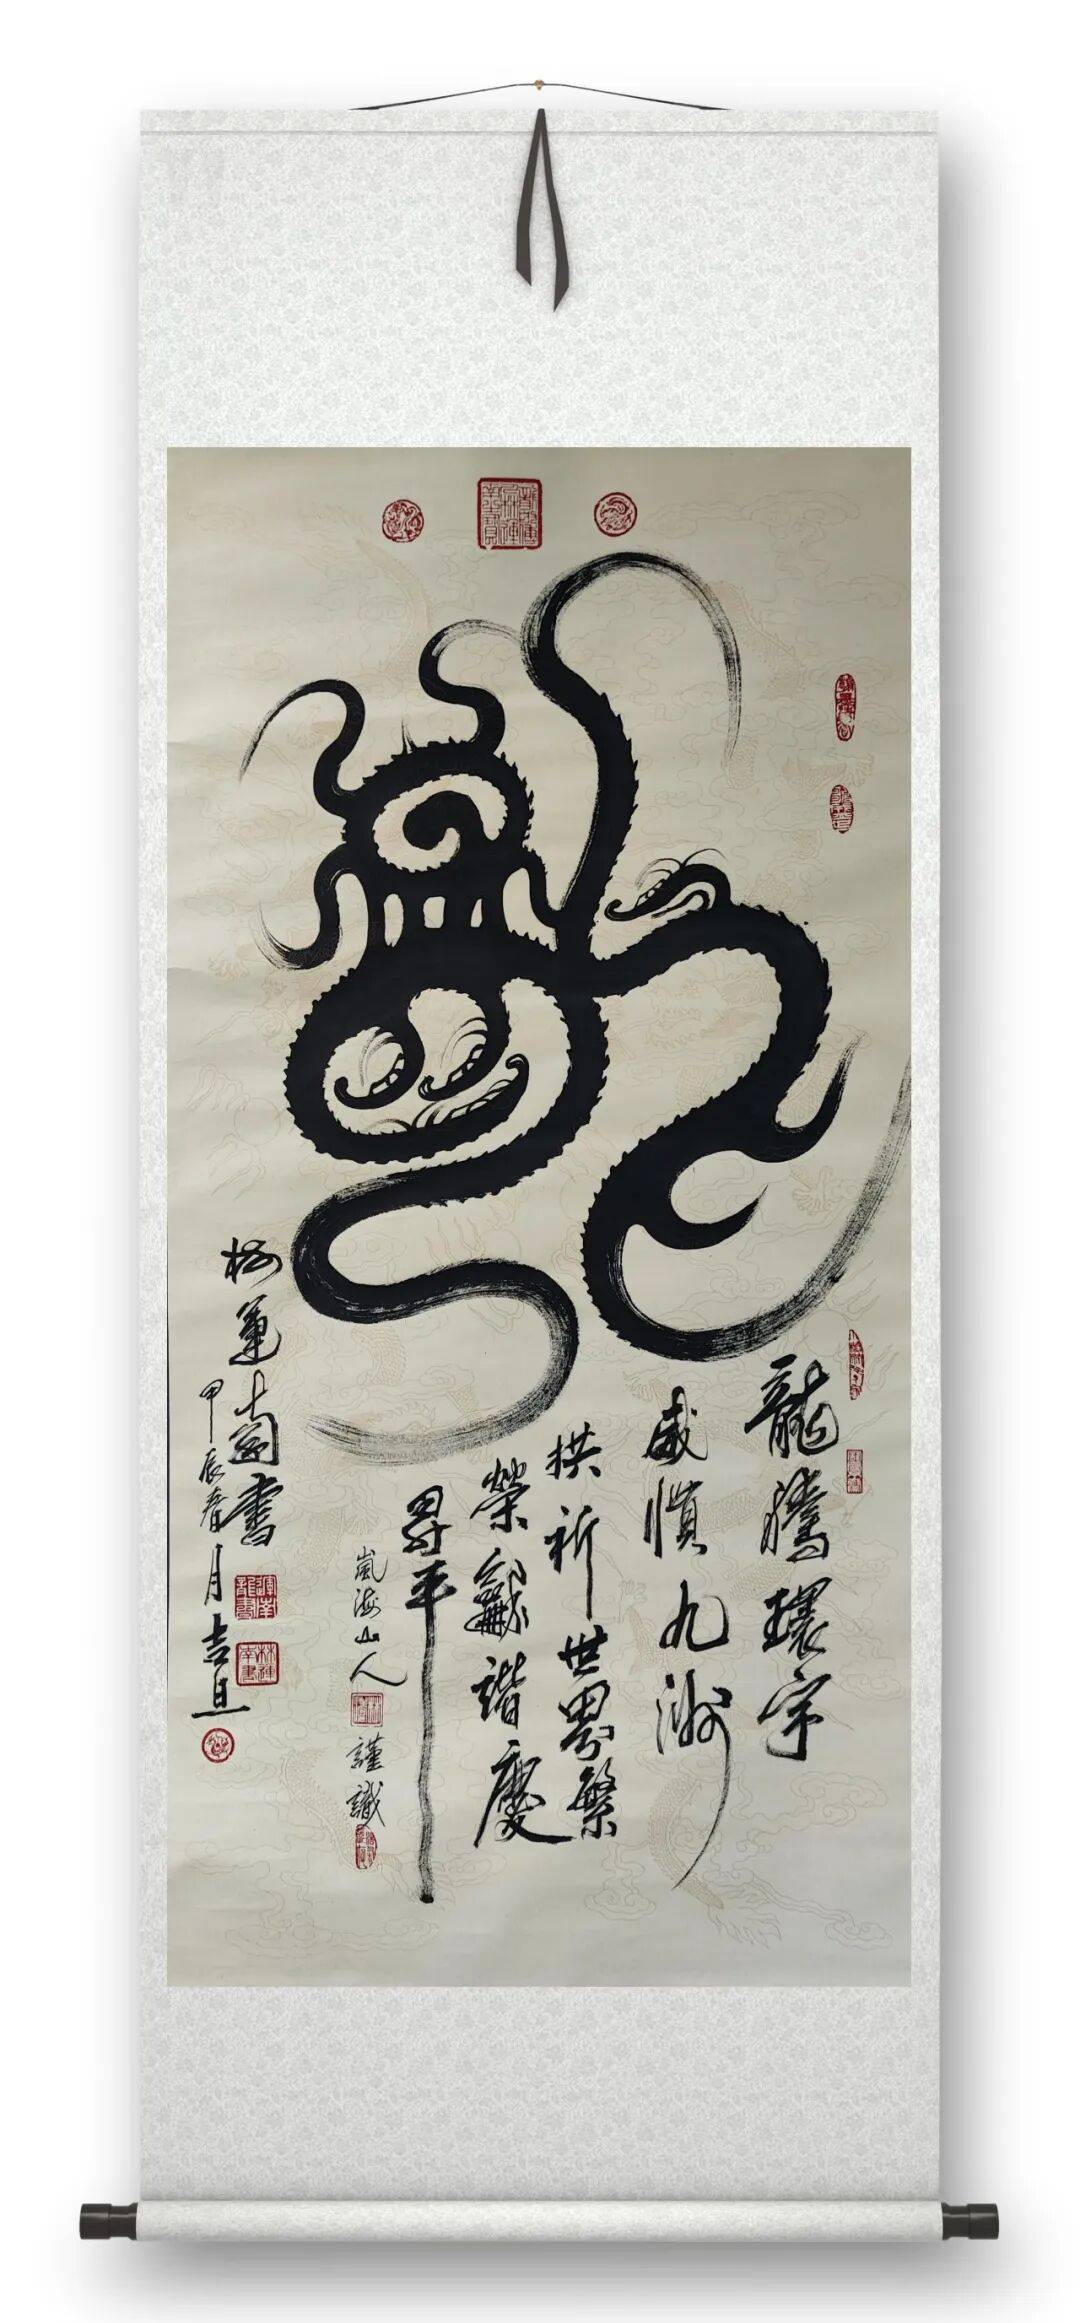 龍騰環宇
威慎九洲
拱祈世界繁
榮龢諧慶
昇平
嵐海山人
謹識
林運南書
甲辰春月吉旦